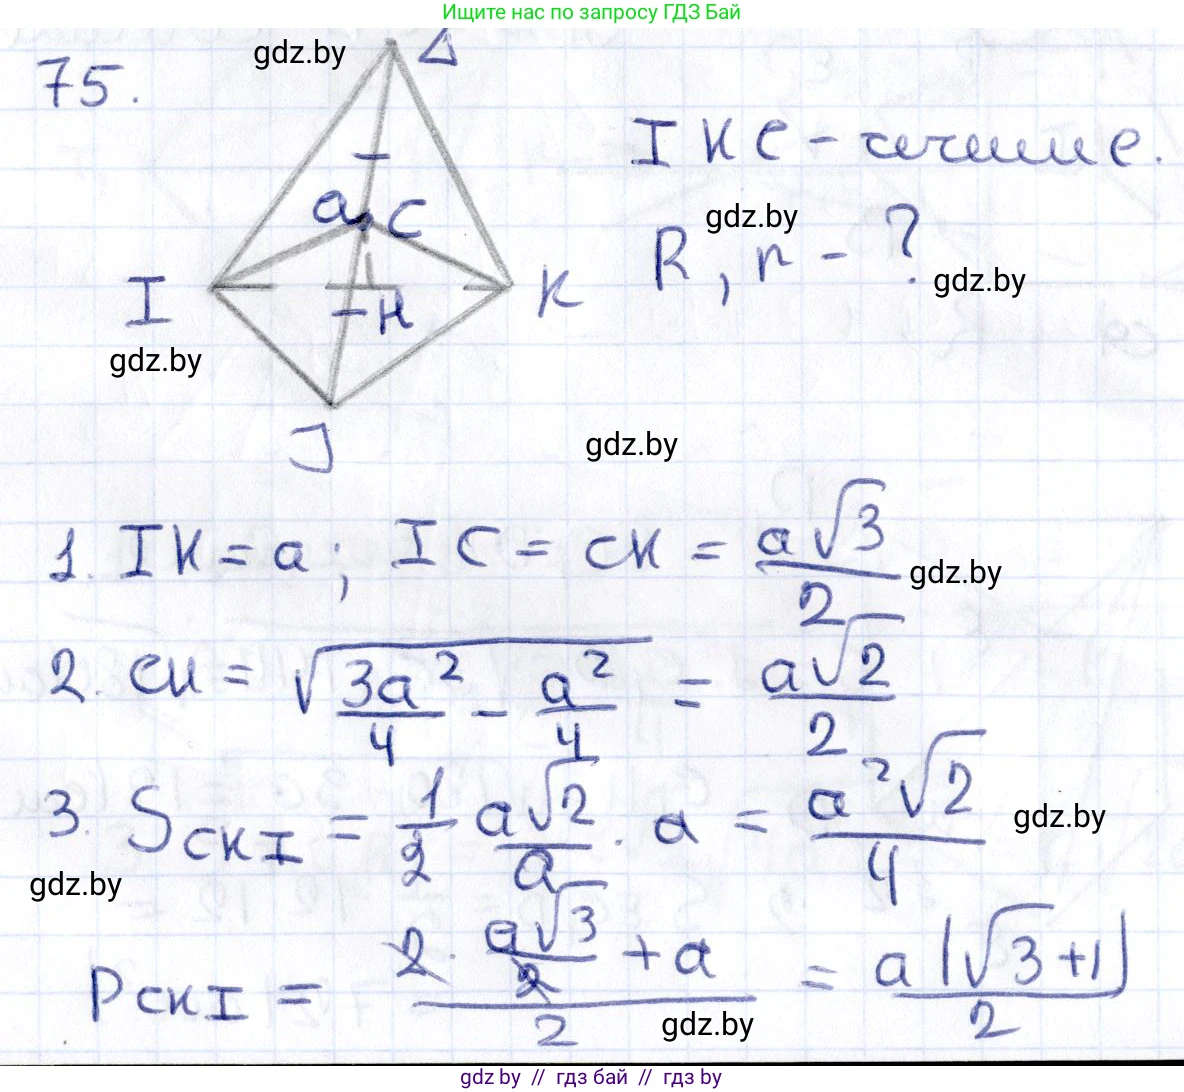 Ищите нас по запросу ГДЗ Бай
75.
gdz.by
Δ
IKC - сечение.
gdz.by
a C
R, r - ?
gdz.by
I
K
H
gdz.by
J
gdz.by
1. IK = a; IC = CK = a√3/2
gdz.by
2. CH = √(3a²/4 - a²/4) = a√2/2
3. S CKI = 1/2 a√2/a · a = a²√2/4
gdz.by
gdz.by
P CKI = (2 · a√3/2 + a)/2 = a(√3+1)/2
gdz.by
gdz.by // гдз бай // гдз by